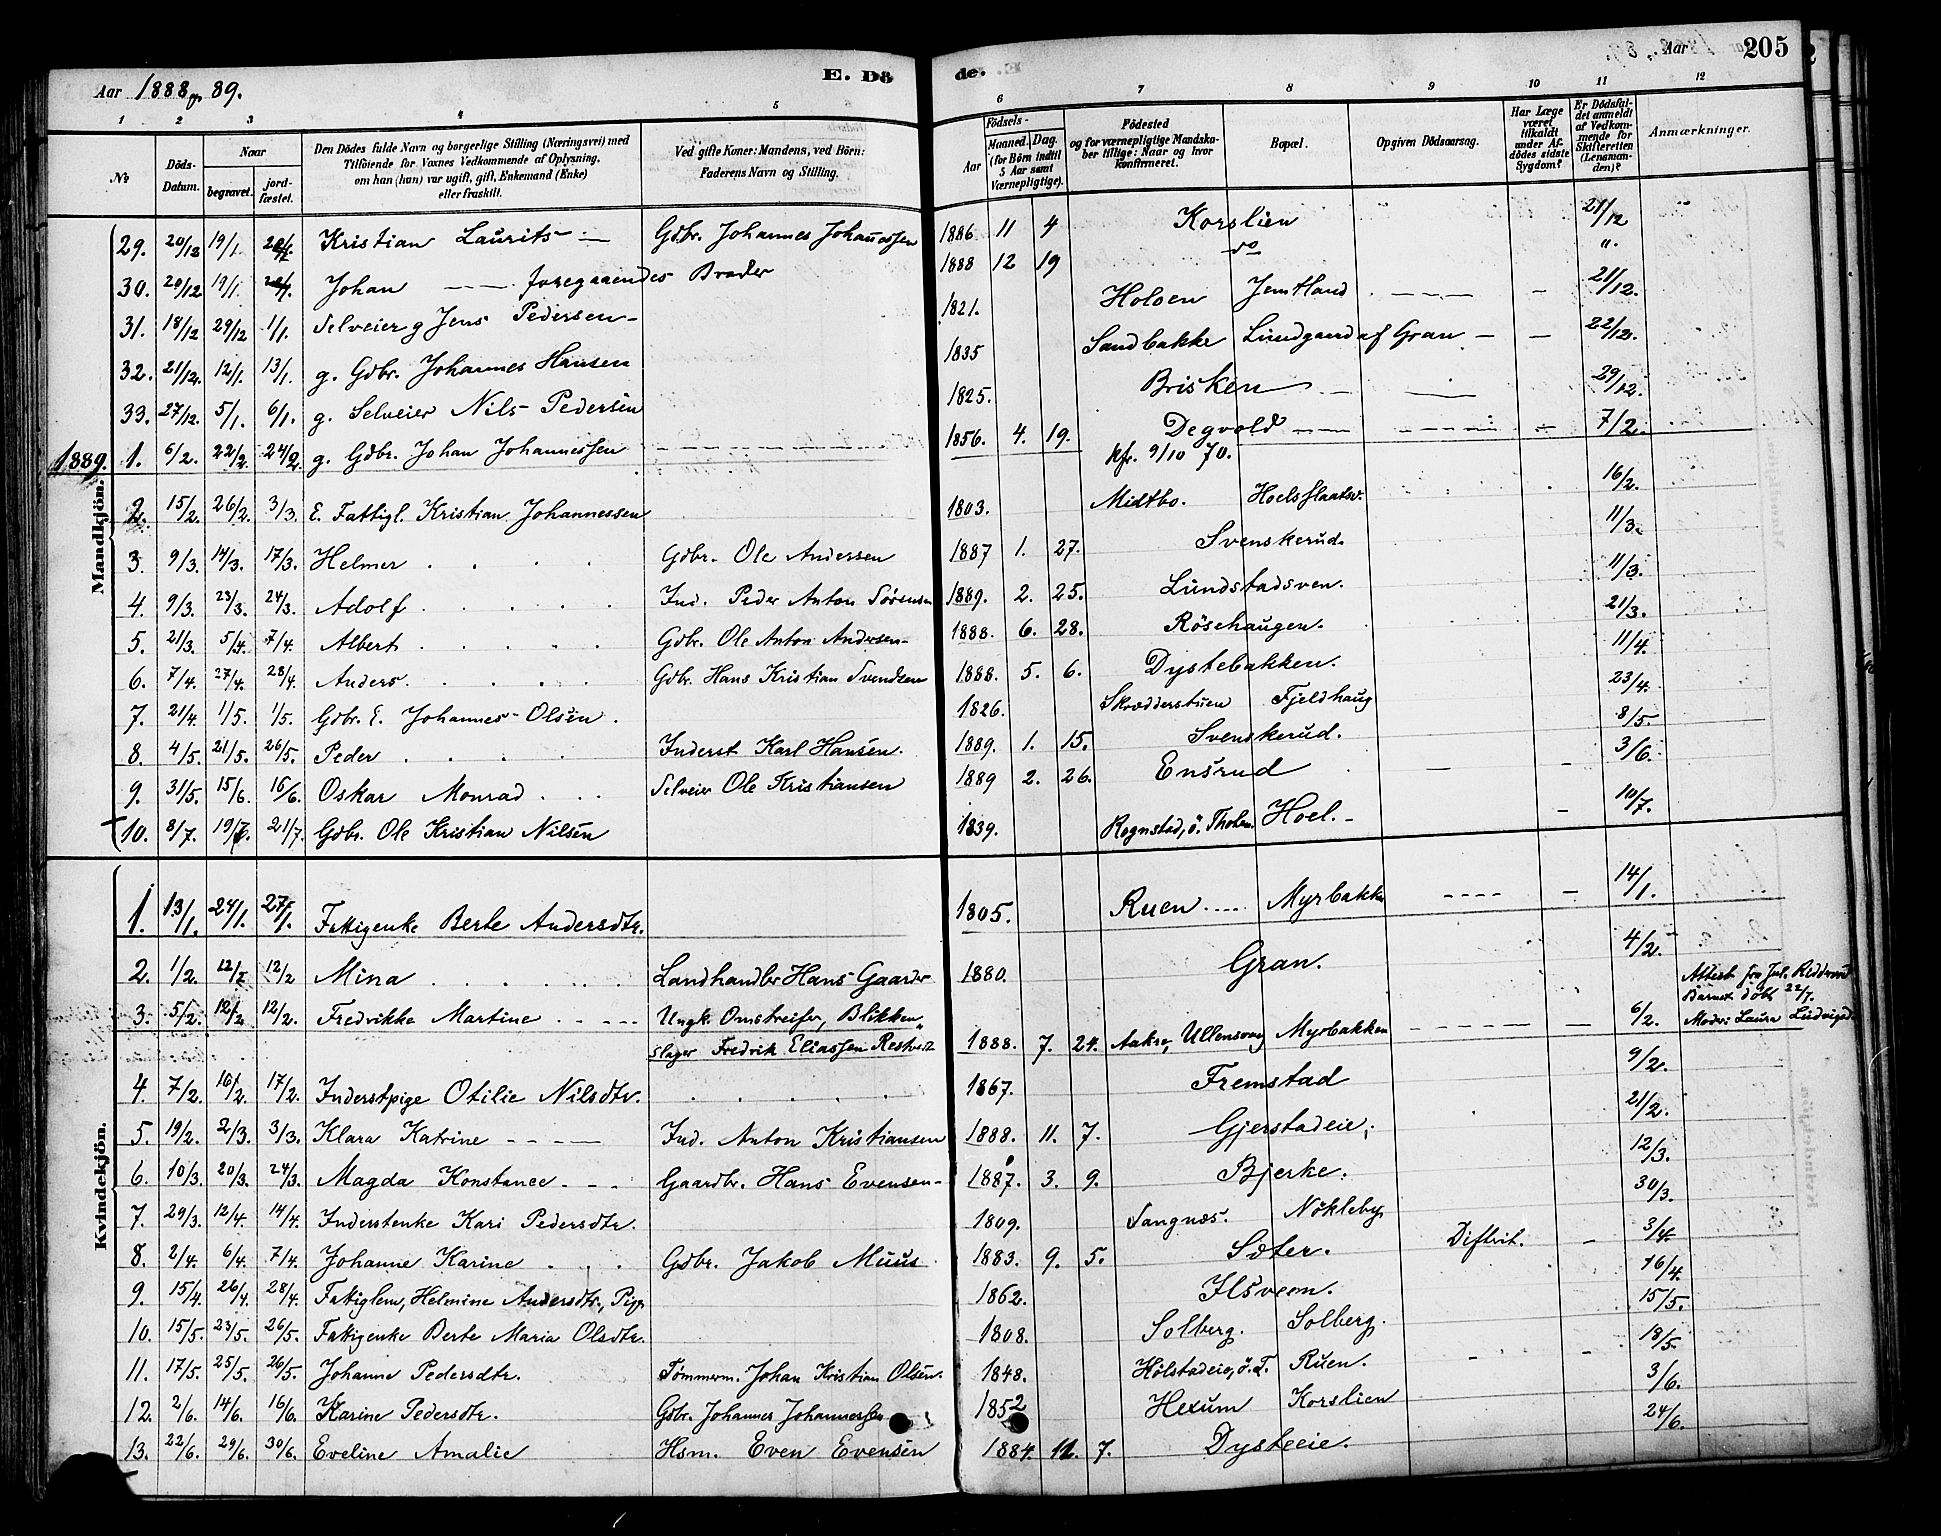 Aar 1888 og 89.
E. Dö
de.
Aar
205
1 2 3 4 5 6 7 8 9 10 11 12
No
Döds-Datum.
Naar
begravet.
jord-fæstet.
Den Dödes fulde Navn og borgerlige Stilling (Næringsvei) med
Tilföiende for Voxnes Vedkommende af Oplysning,
om han (hun) var ugift, gift, Enkemand (Enke)
eller fraskilt.
Ved gifte Koner: Mandens, ved Börn:
Faderens Navn og Stilling.
Födsels-
Aar
Maaned. Dag.
(for Börn indtil
5 Aar samt
Værnepligtige).
Födested
og for værnepligtige Mandska-
ber tillige: Naar og hvor
konfirmeret.
Bopæl.
Opgiven Dödsaarsag.
Har Læge
været
tilkaldt
under Af-
dödes sidste
Sygdom?
Er Dödsfal-
det anmeldt
af Vedkom-
mende for
Skifteretten
(Lensman-
den)?
Anmærkninger.
Mandkjön.
29. 20/12 19/1. Kristian Laurits — Gdbr. Johannes Johannessen 1886 11 4 Korslien 21/12
30. 20/12 19/1. Johan — foregaaendes Broder 1888 12 19 do ".
31. 18/12 29/12 1/1. Selveier g Jens Pedersen 1821. Holoen Jemtland 21/12.
32. 21/12. 12/1. 13/1. g. Gdbr. Johannes Hansen 1835 Sandbakke Lundgaard af Gran 22/12.
33. 27/12. 5/1. 6/1. g. Selveier Nils Pedersen 1825. Brisken 29/12.
1889. 1. 6/2. 22/2. 24/2 g. Gdbr. Johan Johannessen 1856. 4. 19. Degvold 7/2.
kfr. 9/10 70.
2. 15/2. 26/2. 3/3. E. Fattigl. Kristian Johannessen 1803. Midtbo. 16/2.
3. 9/3. 14/3. 17/3. Helmer Gdbr. Ole Andersen 1887 1. 27. Svenskerud. 11/3.
4. 9/3. 23/3. 24/3. Adolf Ind. Peder Anton Sörensen 1889. 2. 25. Lundstadsven. 11/3.
5. 21/3. 5/4. 7/4. Albert Gdbr. Ole Anton Andersen 1888. 6. 28. Rösehaugen. 21/3.
6. 7/4. 27/4. 28/4. Anders. Gdbr. Hans Kristian Svendsen 1888. 5. 6. Dystebakken. 11/4.
7. 21/4. 1/5. 1/5. Gdbr. E. Johannes Olsen. 1826. Skrædderstuen Fjeldhaug 23/4.
8. 4/5. 21/5. 26/5. Peder Inderst Karl Hansen. 1889. 1. 15. Svenskerud. 8/5.
9. 31/5. 15/6. 16/6. Oskar Monrad Selveier Ole Kristiansen 1889 2. 26. Ensrud 3/6.
+ 10. 8/7. 21/7. Gdbr. Ole Kristian Nilsen 1839. Rognstad, ö. Thoten. Hoel. 10/7.
Kvindekjön.
1. 13/1. 24/1. 27/1. Fattigenke Berte Andersdtr. 1805. Ruen Myrbakken 14/1.
2. 1/2. 12/2 12/2 Mina Landhandler Hans Gaarder 1880. Gran. 4/2.
3. 5/2. 12/2 12/2. Fredrikke Martine Ungk. Omstreifer, Blikken-
slager Fredrik Eliassen 1888. 7. 24. Aakre, Ullensvang Myrbakken 6/2.
Attest fra
Barnet döbt 22/7.
Moder: Laura Ludvigsd.
4. 7/2. 16/2. 17/2. Inderstpige Otilie Nilsdtr. 1867. Fremstad 9/2.
5. 19/2. 2/3. 3/3. Klara Katrine Ind. Anton Kristiansen 1888. 11. 7. Gjerstadeie. 21/2.
6. 10/3. 20/3. 24/3. Magda Konstance Gaardbr. Hans Evensen 1887. 3. 9. Bjerke. 12/3.
7. 29/3. 12/4. 14/4. Inderstenke Kari Pedersdtr. 1809. Sangnæs. Nökleby 30/3.
8. 2/4. 6/4. 7/4. Johanne Karine Gdbr. Jakob Muus 1883. 9. 5. Sæter. Diftrit. 3/4
9. 15/4. 26/4. 28/4. Fattiglem, Helmine Andersdtr., Pige 1862. Ilsveen. 16/4.
10. 15/5. 23/5. 26/5. Fattigenke Berte Maria Olsdtr. 1808. Solberg. Solberg. 15/5.
11. 17/5. 25/5. 26/5. Johanne Pedersdtr. Tömmerm. Johan Kristian Olsen. 1848. Hölstadeie, ö. T. Ruen. 18/5.
12. 2/6. 14/6. 16/6. Karine Pedersdtr. Gdbr. Johannes Johannessen 1852 Hexum Korslien 3/6.
13. 22/6. 29/6. 30/6. Eveline Amalie Hsm. Even Evensen 1884. 11. 7. Dysteeie. 24/6.